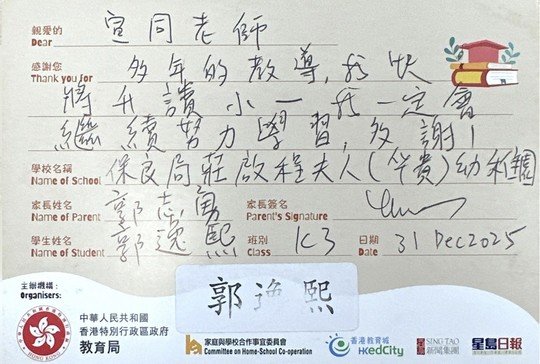 親愛的
Dear
宣同老師
感謝您
Thank you for
多年的教導,我快
將升讀小一我一定會
繼續努力學習,多謝!
學校名稱
Name of School
保良局莊啟程夫人(華貴)幼稚園
家長姓名
Name of Parent
郭志勇
家長簽名
Parent's Signature
學生姓名
Name of Student
郭逸熙
班別
Class
K3
日期
Date
31 Dec 2025
主辦機構:
Organisers:
郭 熙
中華人民共和國
香港特別行政區政府
教育局
HONG KONG
家庭與學校合作事宜委員會
Committee on Home-School Co-operation
香港教育城
HKedCity
SING TAO
新聞集團
星島日報